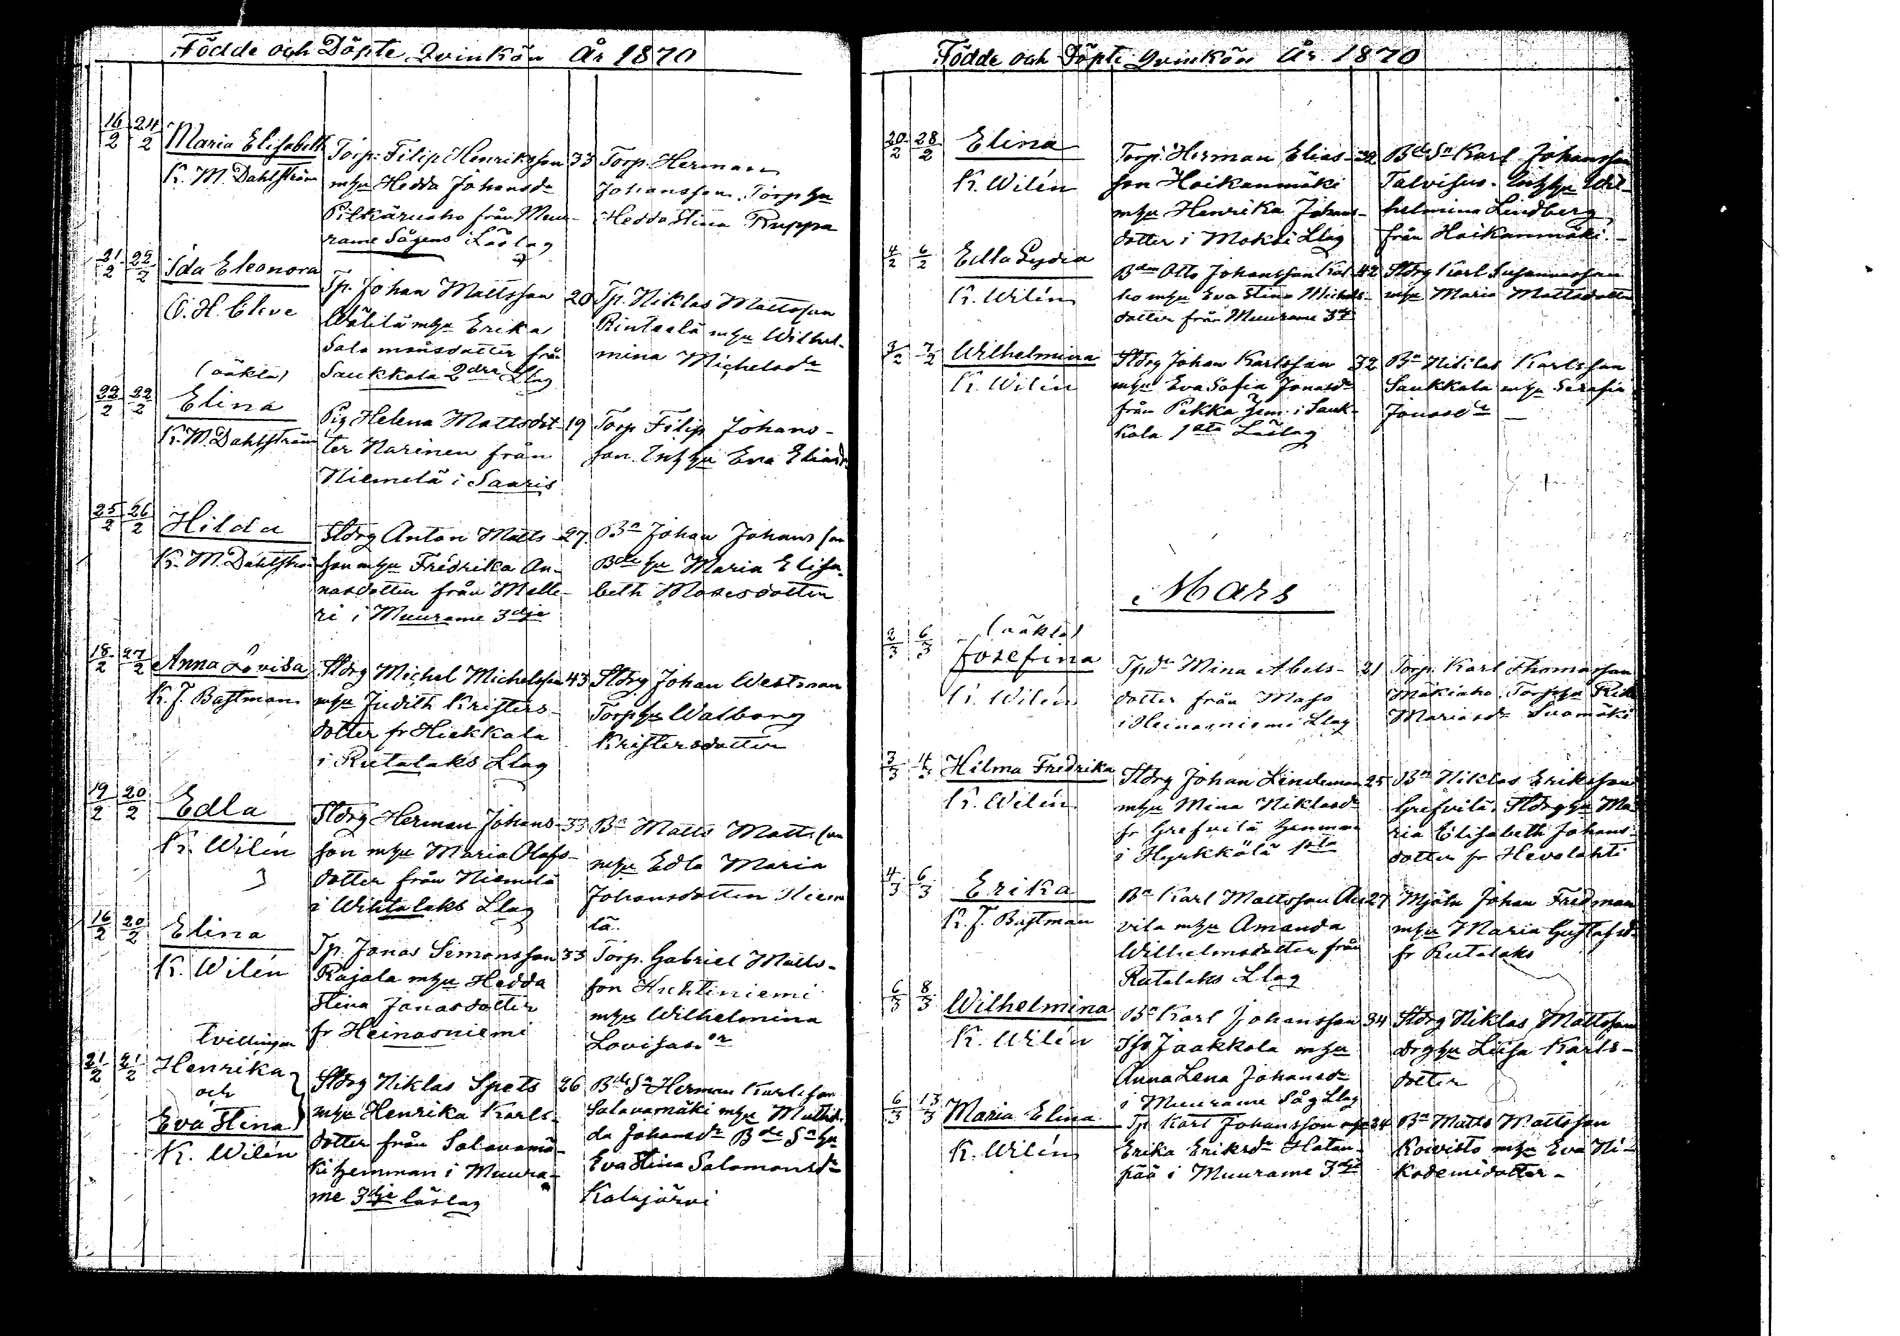 Födde och Döpte Qvinkön År 1870
16/2 24/2 Maria Elisabeth
K. M. Dahlström
Torp. Filip Henriksson 33
mhu Hedda Johansdr
från Muu-
rame Sågens Läslag
Torp. Herman
Johansson, Torp hu
Hedda Stina Ruppa
21/2 22/2 Ida Eleonora
O. H. Cleve
Tp. Johan Mattsson 20
mhu Erika
Salomonsdotter från
Saukkola 2dra Llag
Tp. Niklas Mattsson
Rintaala mhu Wilhel-
mina Michelsdr
(oäkta)
22/2 22/2 Elina
K. M. Dahlström
Pig Helena Mattsdot- 19
ter Narinen från
Niemelä i Saaris
Torp Filip Johans-
son Inh hu Eva Eliasdr
25/2 26/2 Hilda
K. M. Dahlström
Stdrg Anton Matts- 27
son mhu Fredrika An-
nasdotter från Mälte-
ri i Muurame 3dje
Bn Johan Johansson
Bde hu Maria Elisa-
beth Mosesdotter
18/2 27/2 Anna Lovisa
K. J. Bastman
Stdrg Michel Michelsson 43
mhu Judith Kristers-
dotter fr Hiekkala
i Rutalaks Llag
Stdrg Johan Westman
Torp hu Walborg
Kristersdotter
19/2 20/2 Edla
K. Wilén
Stdrg Herman Johans- 33
son mhu Maria Olofs-
dotter från Niemelä
i Wihtalaks Llag
Bn Matts Mattsson
mhu Edla Maria
Johansdotter Nieme
lä.
16/2 20/2 Elina
K. Wilén
Tp. Jonas Simonsson 33
Rajala mhu Hedda
Stina Jonasdotter
fr Heinosniemi
Torp. Gabriel Matts-
son Huhtiniemi
mhu Wilhelmina
Lovisasdr
Tvillingar
21/2 21/2 Henrika
och
Eva Stina
K. Wilén
Stdrg Niklas Spets 26
mhu Henrika Karls-
dotter från Salavamä-
ki hemman i Muura-
me 3dje läslag
Bde Sn Herman Karlsson
Salavamäki mhu Mathil-
da Johansdr Bde Sn hu
Eva Stina Salomonsdr
Kalajärvi
Födde och Döpte Qvinkön År 1870
20/2 28/2 Elina
K. Wilén
Torp. Herman Elias- 32
son Hoikanmäki
mhu Henrika Johans-
dotter i Moksi Llag
Bde Sn Karl Johansson
Talvisuo. Inh hu Wil-
helmina Lindberg
från Hoikanmäki.
4/2 6/2 Edla Lydia
K. Wilén
Bden Otto Johansson Kal- 42
ho mhu Eva Stina Michels-
dotter från Muurame 3dje
Stdrg Karl Susannasson
mhu Maria Mattsdotter
3/2 7/2 Wilhelmina
K. Wilén
Stdrg Johan Karlsson 32
mhu Eva Sofia Jonasdr
från Pekka hem. i Sauk-
kola 1sta Läslag
Bn Niklas Karlsson
Saukkola mhu Serafia
Jonasdr
Mars
(oäkta)
2/3 6/3 Josefina
K. Wilén
Tpdr Mina Abels- 21
dotter från Maso
i Heinosniemi Llag
Torp. Karl Thomasson
Mäkiaho. Torp hu
Mariasdr Suomäki
3/3 4/3 Hilma Fredrika
K. Wilén
Stdrg Johan Lindeman 25
mhu Mina Niklasdr
fr Grefvilä hemman
i Hyrkkölä 1sta
Bn Niklas Eriksson
Grefvilä. Stdrg hu Ma
ria Elisabeth Johans-
dotter fr Hevolahti
4/3 6/3 Erika
K. J. Bastman
Bn Karl Mattsson 27
vila mhu Amanda
Wilhelmsdotter från
Rutalaks Llag
Mjöln Johan Fredman
mhu Maria Gustafsdr
fr Rutalaks
6/3 8/3 Wilhelmina
K. Wilén
Bn Karl Johansson 34
Iso Jaakkola mhu
Anna Lena Johansdr
i Muurame Såg Llag
Stdrg Niklas Mattsson
drg hu Lisa Karls-
dotter
6/3 13/3 Maria Elina
K. Wilén
Tp Karl Johansson mhu 24
Erika Eriksdr Hatan-
pää i Muurame 3dje
Bn Matts Mattsson
Koivisto mhu Eva Ni-
kodemidotter